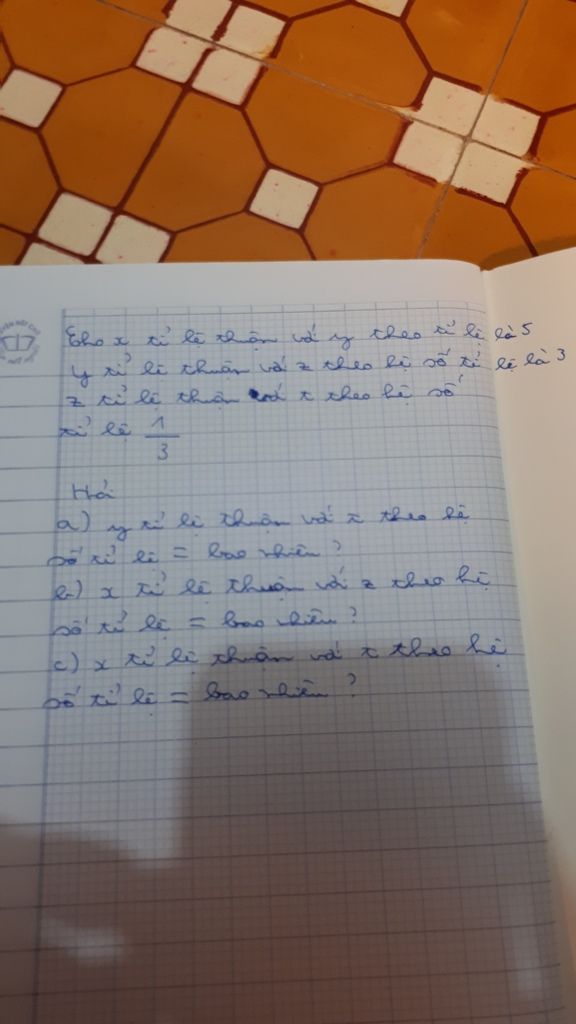 Cho x tỉ lệ thuận với y theo tỉ lệ là 5
y tỉ lệ thuận với z theo hệ số tỉ lệ là 3
z tỉ lệ thuận với t theo hệ số
tỉ lệ 1/3
Hỏi
a) y tỉ lệ thuận với t theo hệ
số tỉ lệ = bao nhiêu ?
b) x tỉ lệ thuận với z theo hệ
số tỉ lệ = bao nhiêu ?
c) x tỉ lệ thuận với t theo hệ
số tỉ lệ = bao nhiêu ?